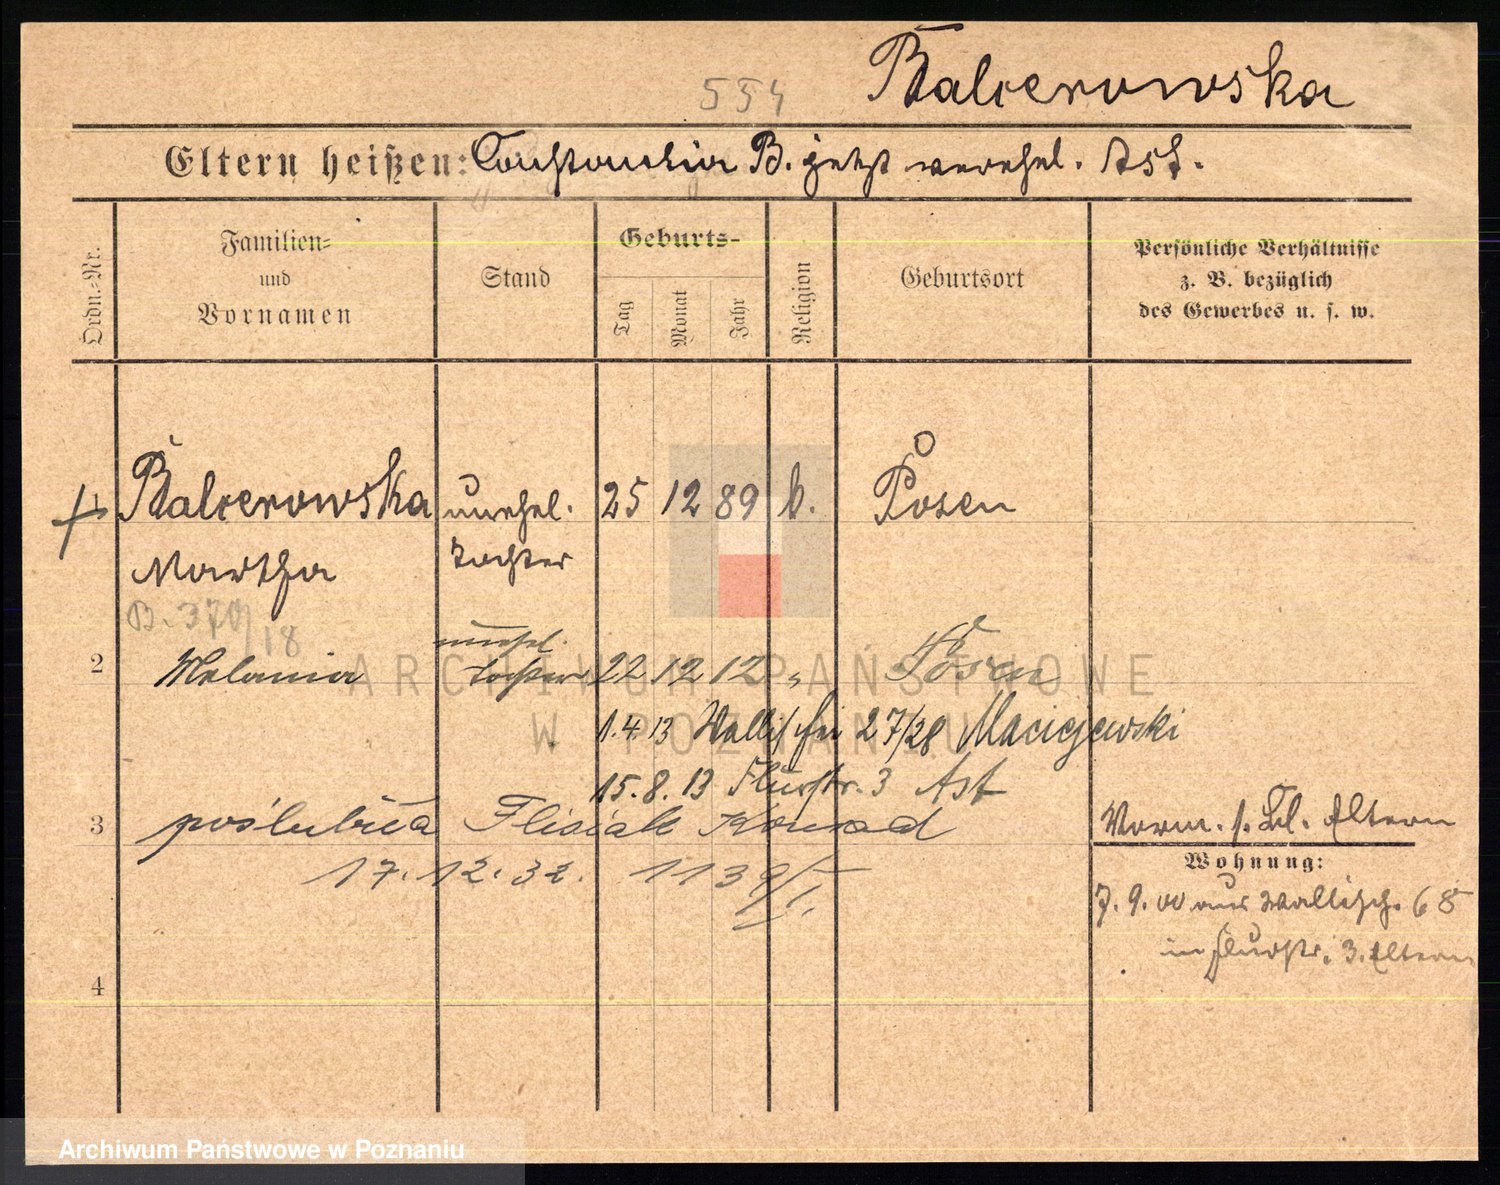 554
Balcerowska
Eltern heißen: Constantia B. jetzt verehel. Ast.
Ordn.-Nr.
Familien-
und
Vornamen
Stand
Geburts-
Tag
Monat
Jahr
Religion
Geburtsort
Persönliche Verhältnisse
z. B. bezüglich
des Gewerbes u. s. w.
1 Balcerowska unehel. 25 12 89 k. Posen
Martha Tochter
B. 370/18
unehel.
2 Melania Tochter 22 12 12 " Posen
1.4.13 Wallischei 27/28 Maciejewski
15.8.13 Flurstr. 3 Ast
3 poślubiła Flisiak Konrad
17.12.32. 1139/I.
Vorm. s. Bl. Eltern
Wohnung:
7.9.00 aus Wallisch. 68
in Flurstr. 3. Eltern
4
ARCHIWUM PAŃSTWOWE
W POZNANIU
Archiwum Państwowe w Poznaniu